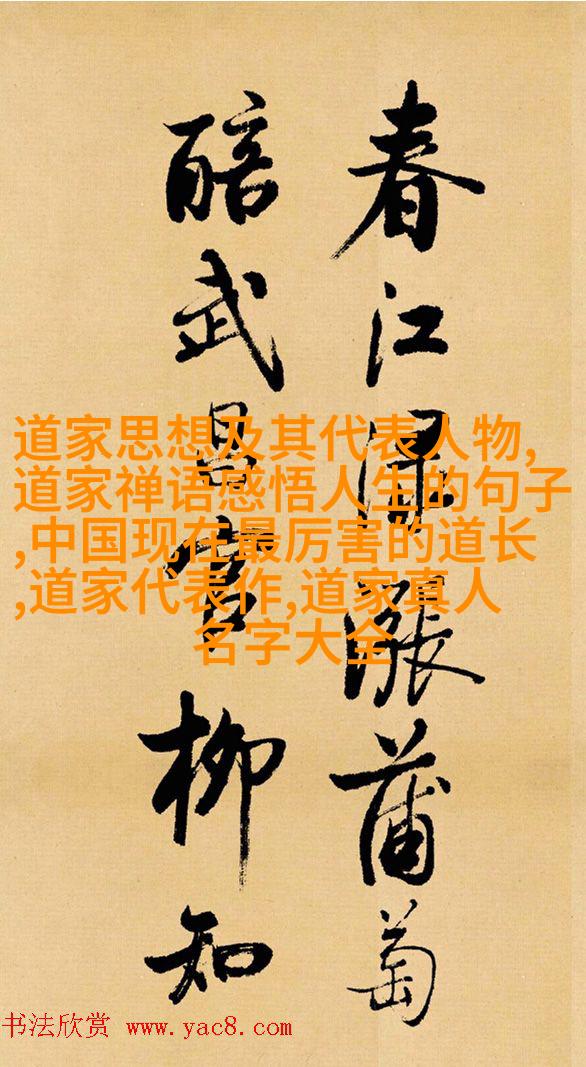 春江渌漲蒲萄
醅武昌官柳知
道家思想及其代表人物,
道家禅语感悟人生的句子
,中国现在最厉害的道长
,道家代表作,道家真人
名字大全
书法欣赏 www.yac8.com